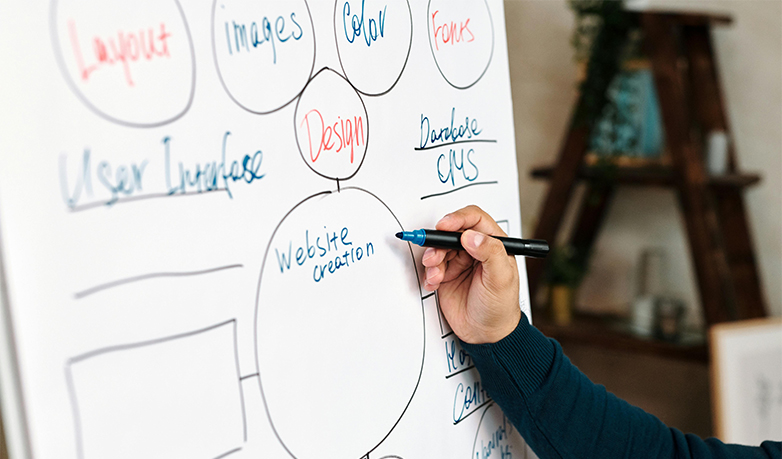 Layout
images
Color
Fonts
Design
User Interface
Database
CMS
Website
creation